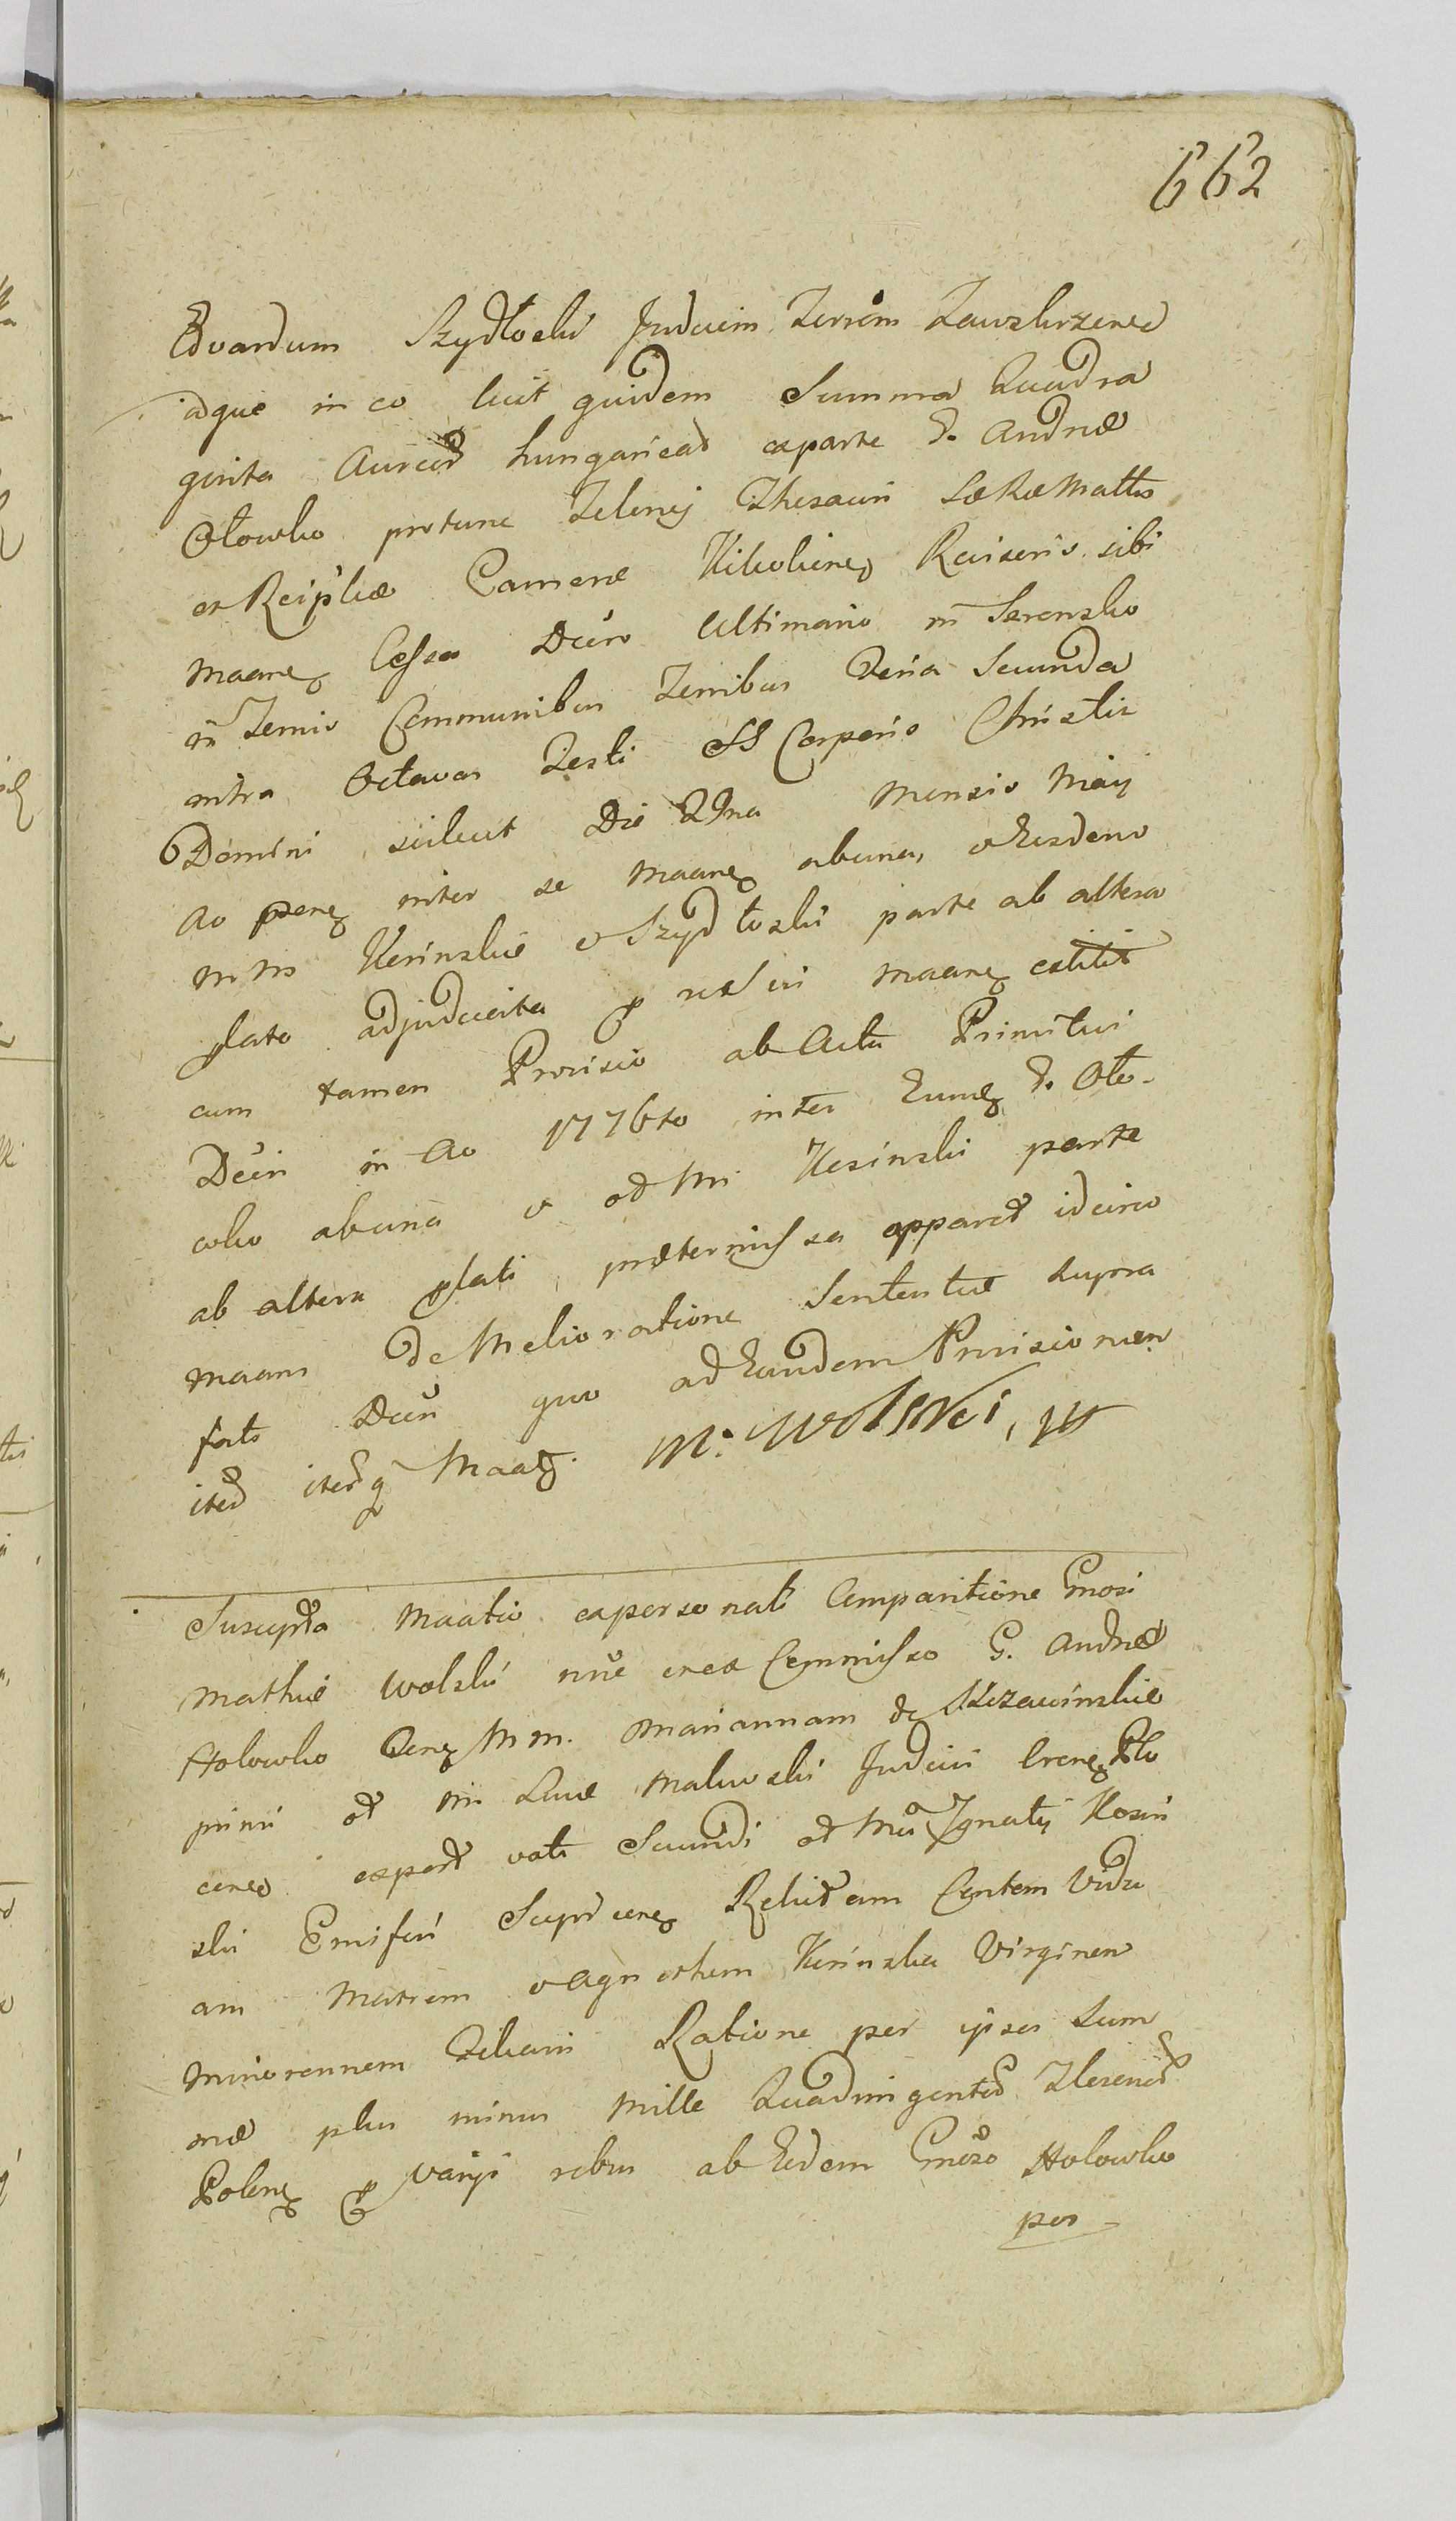 662
Edvardum Szydłoski Judicem Terrem Zawskrzens
idque in eo licit quidem Summa Quadra
ginta Aureor hungarical exparte G. Andreæ
Ołowko protunc Telonij Thesauri SæRæMattis
et Reiplicæ Cameræ Revisoris sibi
maanz Cessa Decro Ultimario in Serensko
in Termis Communibus Terribus Feria Secunda
intra Octavas Festi SS Corporis Christi
Domini scilicet Die 29na Mensis Maij
Ao psenz inter se maanz abuna, & Eosdem
M Ms Kesinskie & Szydłoski parte ab altera
plato adjudicita maanz extitit
cum tamen Provisio ab Actu Primitivi
Decri in Ao 1776to inter Eumdz G. Oło-
wko abuna & od Mi Kesinski parte
ab altera plati prætermissa apparet idcirco
maam de Melioratione Sententiæ supra
fati Decri quo ad Eandem Provisionem
iter iterq Maatz. M. Wolski, mp
Suscepta Maatio expersonali Comparitione Gnosi
Mathiæ Wolski nne erex Commisso G. Andreæ
Holowko Genz M m. Mariannam de Skrzawinskie
primi od Mi Lucæ Makowski Judicis Crenz Plo
cens expost voti Secundi od Ma Ignatij Kosin
ski Emiferi Suprcenz Relictam Contem Vidu
am Matrem & Agnetem Kesinska Virginem
Minorennem Filiam Ratione per ipsas Sum
mæ plus minus Mille Quadringentor Florenor
Polonz varijs rebus ab Eodem Gnoso Holowko
per